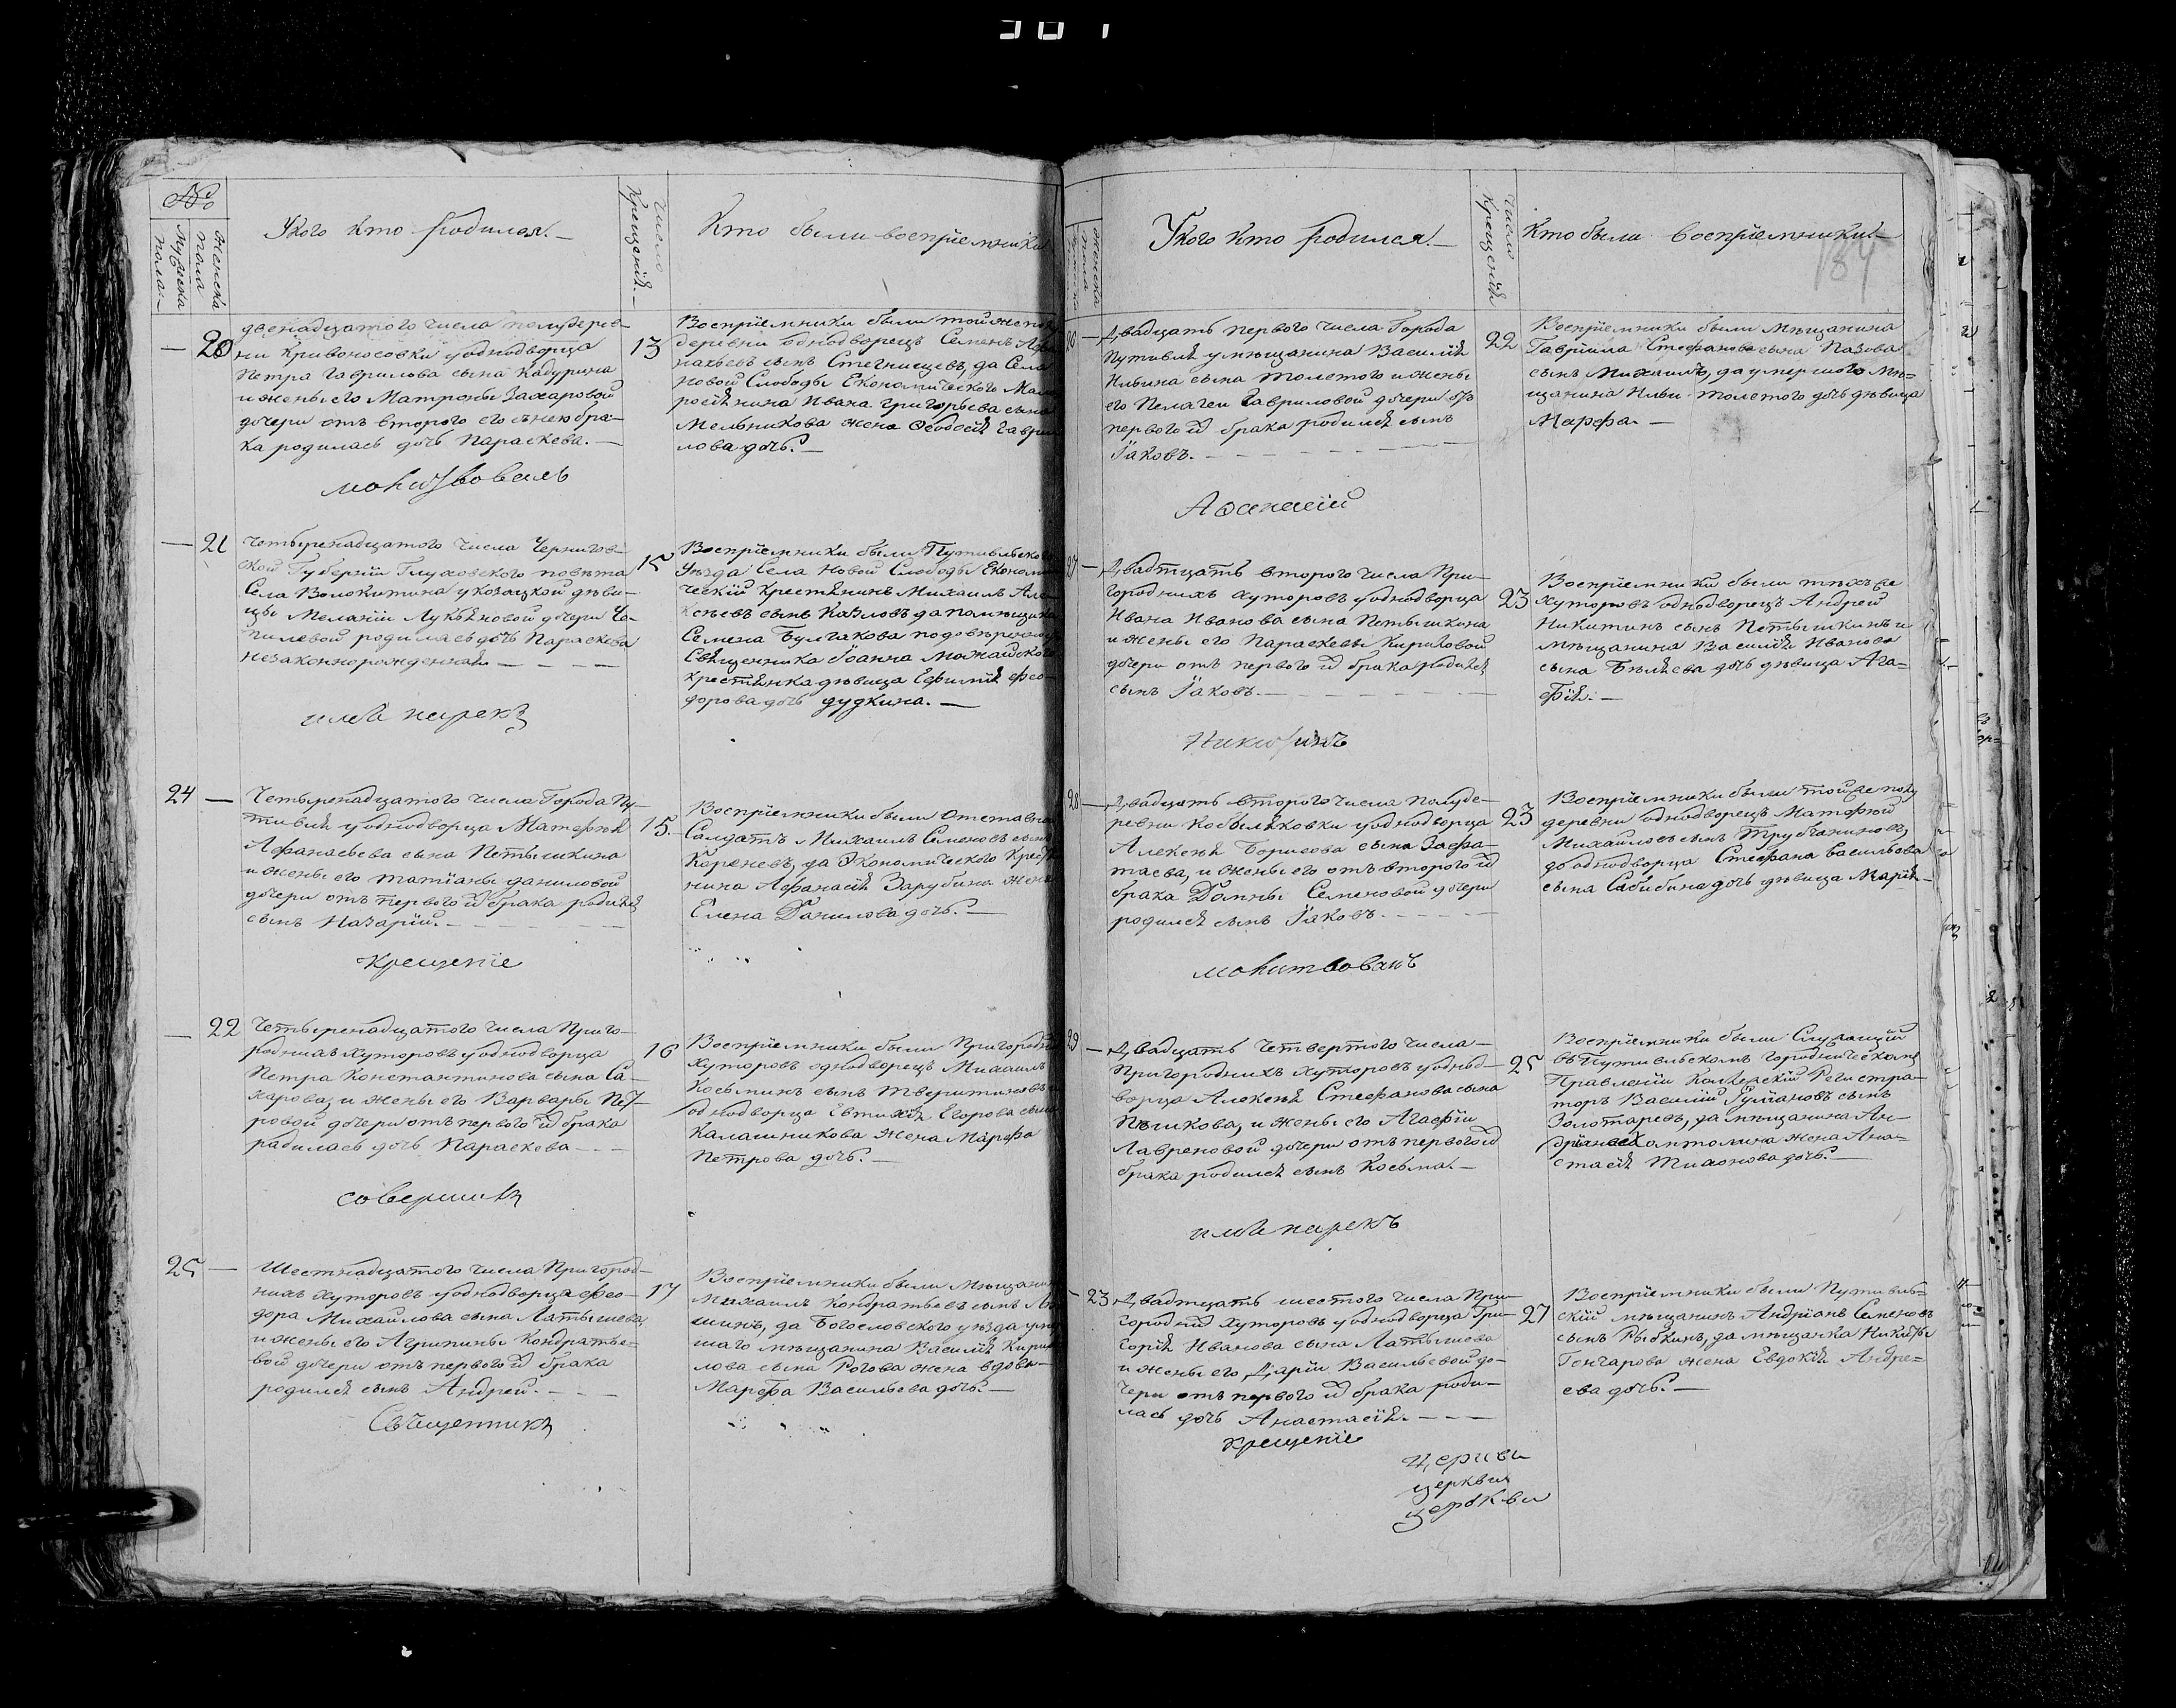 №
Женска пола
Мужеска пола
Укого кто родился.
Число Крещения
Кто были восприемники
20
двенадцатого числа полудерев-
ни Кривоносовки уоднодворца
Петра Гаврилова сына Кабурина
и жены его Матроны Захаровой
дочери отъ второго его съ нею бра-
ка родилась дочь Параскева.
13
Восприемники были тойже полу
деревни однодворецъ Семенъ
сынъ да села
Новой Слободы Економического
Ивана Григорьева сына
Мельникова жена Феодосія Гаври
лова дочь.
молитвовалъ
21
Четыренадцатого числа Чернигов-
ской Губерніи Глуховского повѣта
Села Волокитина указацкой дѣви-
цы Меланіи Лукьяновой дочери Че-
пилевой родилась дочь Параскева
незаконнорожденная
15
Восприемники были Путивльского
Уѣзда Села Новой Слободы Економи
ческій крестьянинъ Михаилъ Але-
ксѣевъ сынъ Козловъ да помѣщика
Семена Булгакова
Священника Іоанна Можайского
крестьянка дѣвица Ефимія Фео-
дорова дочь Дудкина.
имя нарекъ
24
Четыренадцатого числа Города Пу-
тивля уоднодворца Матфея
Афанасьева сына Петышкина
и жены его Татіаны Даниловой
дочери отъ первого ихъ брака родился
сынъ Назарій.
15.
Восприемники были Отставной
Солдатъ Михаилъ Семеновъ сынъ
Кореневъ, да Экономического Крестья
нина Афанасія Зарубина жена
Елена Данилова дочь.
крещение
22
Четыренадцатого числа Приго-
роднихъ хуторовъ уоднодворца
Петра Константинова сына Са-
харова, и жены его Варвары Пет-
ровой дочери отъ первого ихъ брака
радилась дочь Параскева
16
Восприемники были Пригородныхъ
хуторовъ однодворецъ Михаилъ
Косьминъ сынъ Тверитиновъ
однодворца Евтихія Егорова сына
Калашникова жена Марфа
Петрова дочь.
совершилъ
25
Шестнадцатого числа Пригород-
нихъ хуторовъ уоднодворца Фео-
дора Михайлова сына Латышева
и жены его Агрипины Кондратье-
вой дочери отъ первого ихъ брака
родился сынъ Андрей.
17
Восприемники были мѣщанинъ
Михаилъ Кондратьевъ сынъ
да Богословского уѣзда умер
шаго мѣщанина Василія Кири
лова сына Рогова жена вдова
Марфа Васильева дочь.
Священникъ
Женска пола
Укого кто родился.
Число Крещеній
Кто были восприемники
184
26
Двадцать первого числа Города
Путивля умѣщанина Василія
Ильина сына Толстого и жены
его Пелагеи Гавриловой дочери отъ
первого ихъ брака родился сынъ
Іаковъ.
22
Восприемники были Мѣщанина
Гавріила Стефанова сына Пазова
сынъ Михаилъ, да умершого мѣ-
щанина Ильи Толстого дочь дѣвица
Марфа.
Афанасій
27
Двадтцать второго числа При-
городнихъ хуторовъ уоднодворца
Ивана Иванова сына Петышкина
и жены его Параскевы Кириловой
дочери отъ первого ихъ брака родился
сынъ Іаковъ.
23
Восприемники были тѣхъ же
хуторовъ однодворецъ Андрей
Никитинъ сынъ Петышкинъ и
мѣщанина Василія Иванова
сына Бѣляева дочь дѣвица Ага-
фія.
28
Двадцать второго числа полуде-
ревни Кобыляковки уоднодворца
Алексѣя Борисова сына
и жены его отъ второго ихъ
брака Домны Семеновой дочери
родился сынъ Іаковъ.
23
Восприемники были тойже полу
деревни однодворецъ Матфей
Михайловъ сынъ Трубчаниновъ,
да однодворца Стефана Васильева
сына дочь дѣвица Марія
молитвовалъ
29
Двадцать Четвертого числа
Пригородникъ хуторовъ уоднод-
ворца Алексѣя Стефанова сына
и жены его Агафіи
Лавреновой дочери отъ первого ихъ
брака родился сынъ Косьма.
25
Восприемники были Служащій
въ Путивльскомъ Городническомъ
Правленіи Колежскій Регистра-
торъ Василій сынъ
Золотаревъ, да мѣщанина Ан-
жена Ана-
стасія Тихонова дочь.
имя нарекъ
23
Двадтцать шестого числа При-
городнихъ хуторовъ уоднодворца Гри-
горія Иванова сына Латышова
и жены его Даріи Васильевой до-
чери отъ первого ихъ брака роди-
лась дочь Анастасія.
27
Восприемники были Путивль-
скій мѣщанинъ Андріанъ Семеновъ
сынъ Рыбкинъ, да мѣщанка Никиты
Гончарова жена Евдокія Андре-
ева дочь.
крещеніе
церкви
церкви
церькви